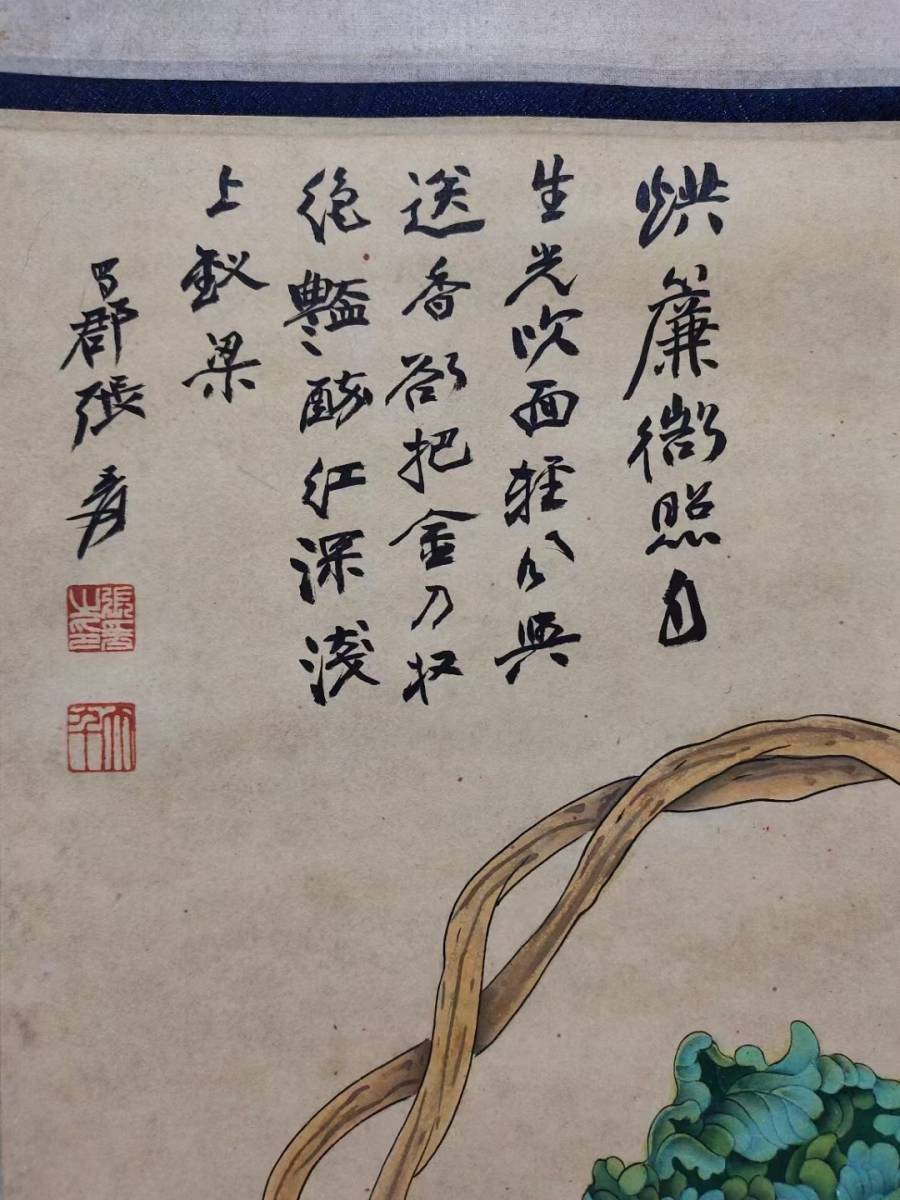 烘簾照自
生光吹面輕風與
送香欲把金刀收
絕豔醉紅深淺
上釵梁
蜀郡張爰
張爰之印
大千